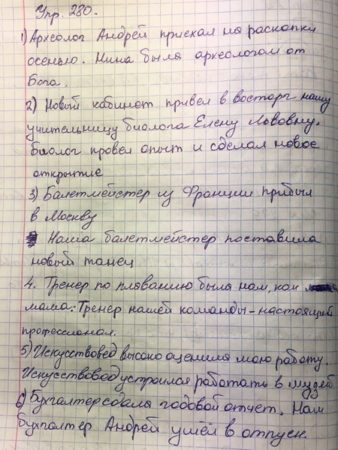 Упр. 280.
1) Археолог Андрей приехал на раскопки
осенью. Нина была археологом от
Бога.
2) Новый кабинет привел в восторг нашу
учительницу биолога Елену Львовну.
Биолог провел опыт и сделал новое
открытие
3) Балетмейстер из Франции прибыл
в Москву
Наша балетмейстер поставила
новый танец
4. Тренер по плаванию была нам, как
мама. Тренер нашей команды - настоящий
профессионал.
5) Искусствовед высоко оценила мою работу.
Искусствовед устроился работать в музей
6) Бухгалтер сдала годовой отчет. Нам
бухгалтер Андрей ушёл в отпуск.